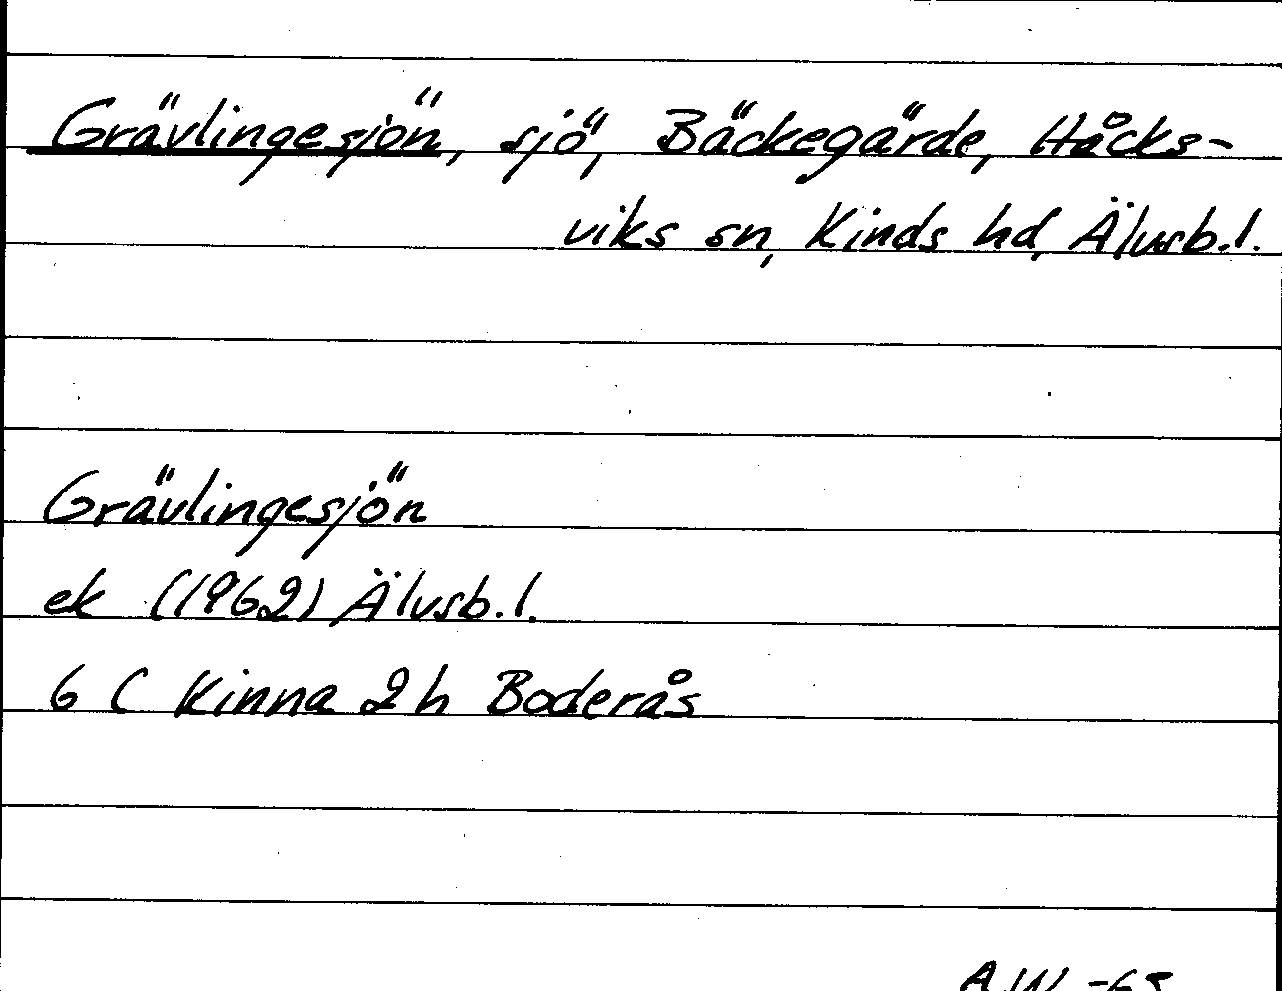 Grävlingesjön, sjö, Bäckegärde, Håcks-
viks sn, Kinds hd, Älvsb.l.
Grävlingesjön
ek (1962) Älvsb.l.
6 C Kinna 2h Boderås
A.W. -65